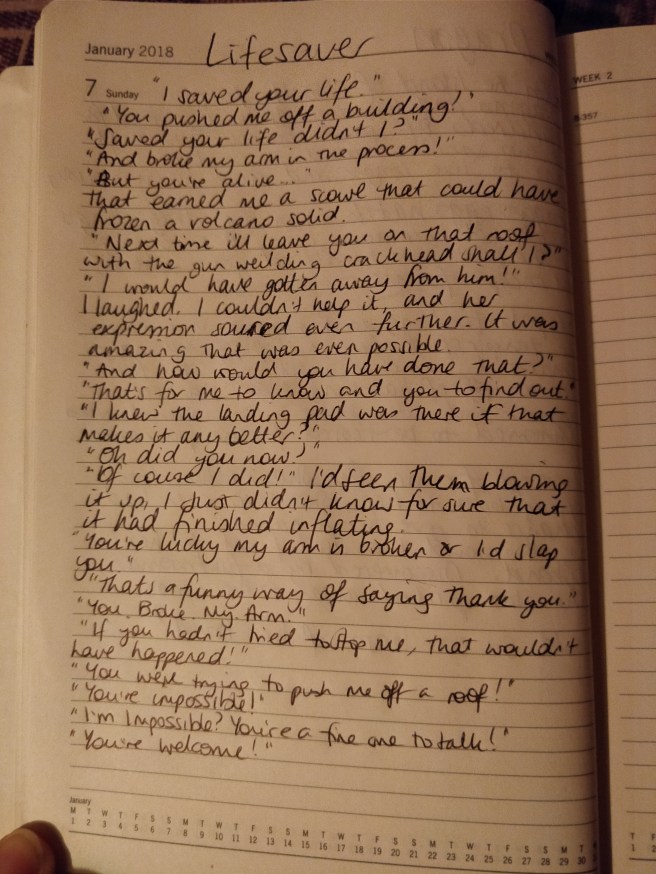 January 2018 Lifesaver
7 Sunday "I saved your life."
"You pushed me off a building!"
"Saved your life didn't I?"
"And broke my arm in the process!"
"But you're alive..."
That earned me a scowl that could have
frozen a volcano solid.
"Next time i'll leave you on that roof
with the gun weilding crackhead shall I?"
"I would have gotten away from him!"
I laughed. I couldn't help it, and her
expression soured even further. It was
amazing that was even possible.
"And how would you have done that?"
"That's for me to know and you to find out."
"I knew the landing pad was there if that
makes it any better?"
"Oh did you now?"
"Of couse I did!" I'd seen them blowing
it up, I just didn't know for sure that
it had finished inflating.
"You're lucky my arm is broken or I'd slap
you."
"Thats a funny way of saying thank you."
"You. Broke. My. Arm."
"If you hadn't tried to stop me, that wouldn't
have happened!"
"You were trying to push me off a roof!"
"You're impossible!"
"I'm Impossible? You're a fine one to talk!"
"You're welcome!"
January
M T W T F S S M T W T F S S M T W T F S S M T W T F S S M T W
1 2 3 4 5 6 7 8 9 10 11 12 13 14 15 16 17 18 19 20 21 22 23 24 25 26 27 28 29 30
WEEK 2
8-357
T F
1 2